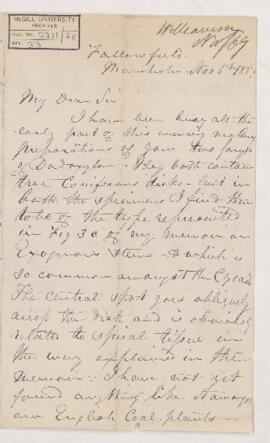 McGILL UNIVERSITY
ARCHIVES
ACC. NO. 2211/
REF. 33
Williamson
Nov 6/
Fallowfield
Manchester Nov 6th
My Dear Sir
I have been busy all the
early part of this evening making
preparations of your two forms
of Dadoxylon. They both contain
true Coniferous disks - but in
both the specimens I find them
to be of the type represented
in Fig 3 c of my memoir on
Exogenous Stems - & which is
so common amongst the Cycads
The central spot goes obliquely
across the disk and is obviously
related to spiral tissue in
the way explained in that
memoir. I have not yet
found anything like it amongst
our English Coal plants -